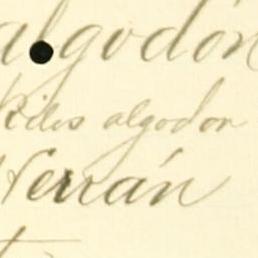 algodón
Kilos algodon
Herrán